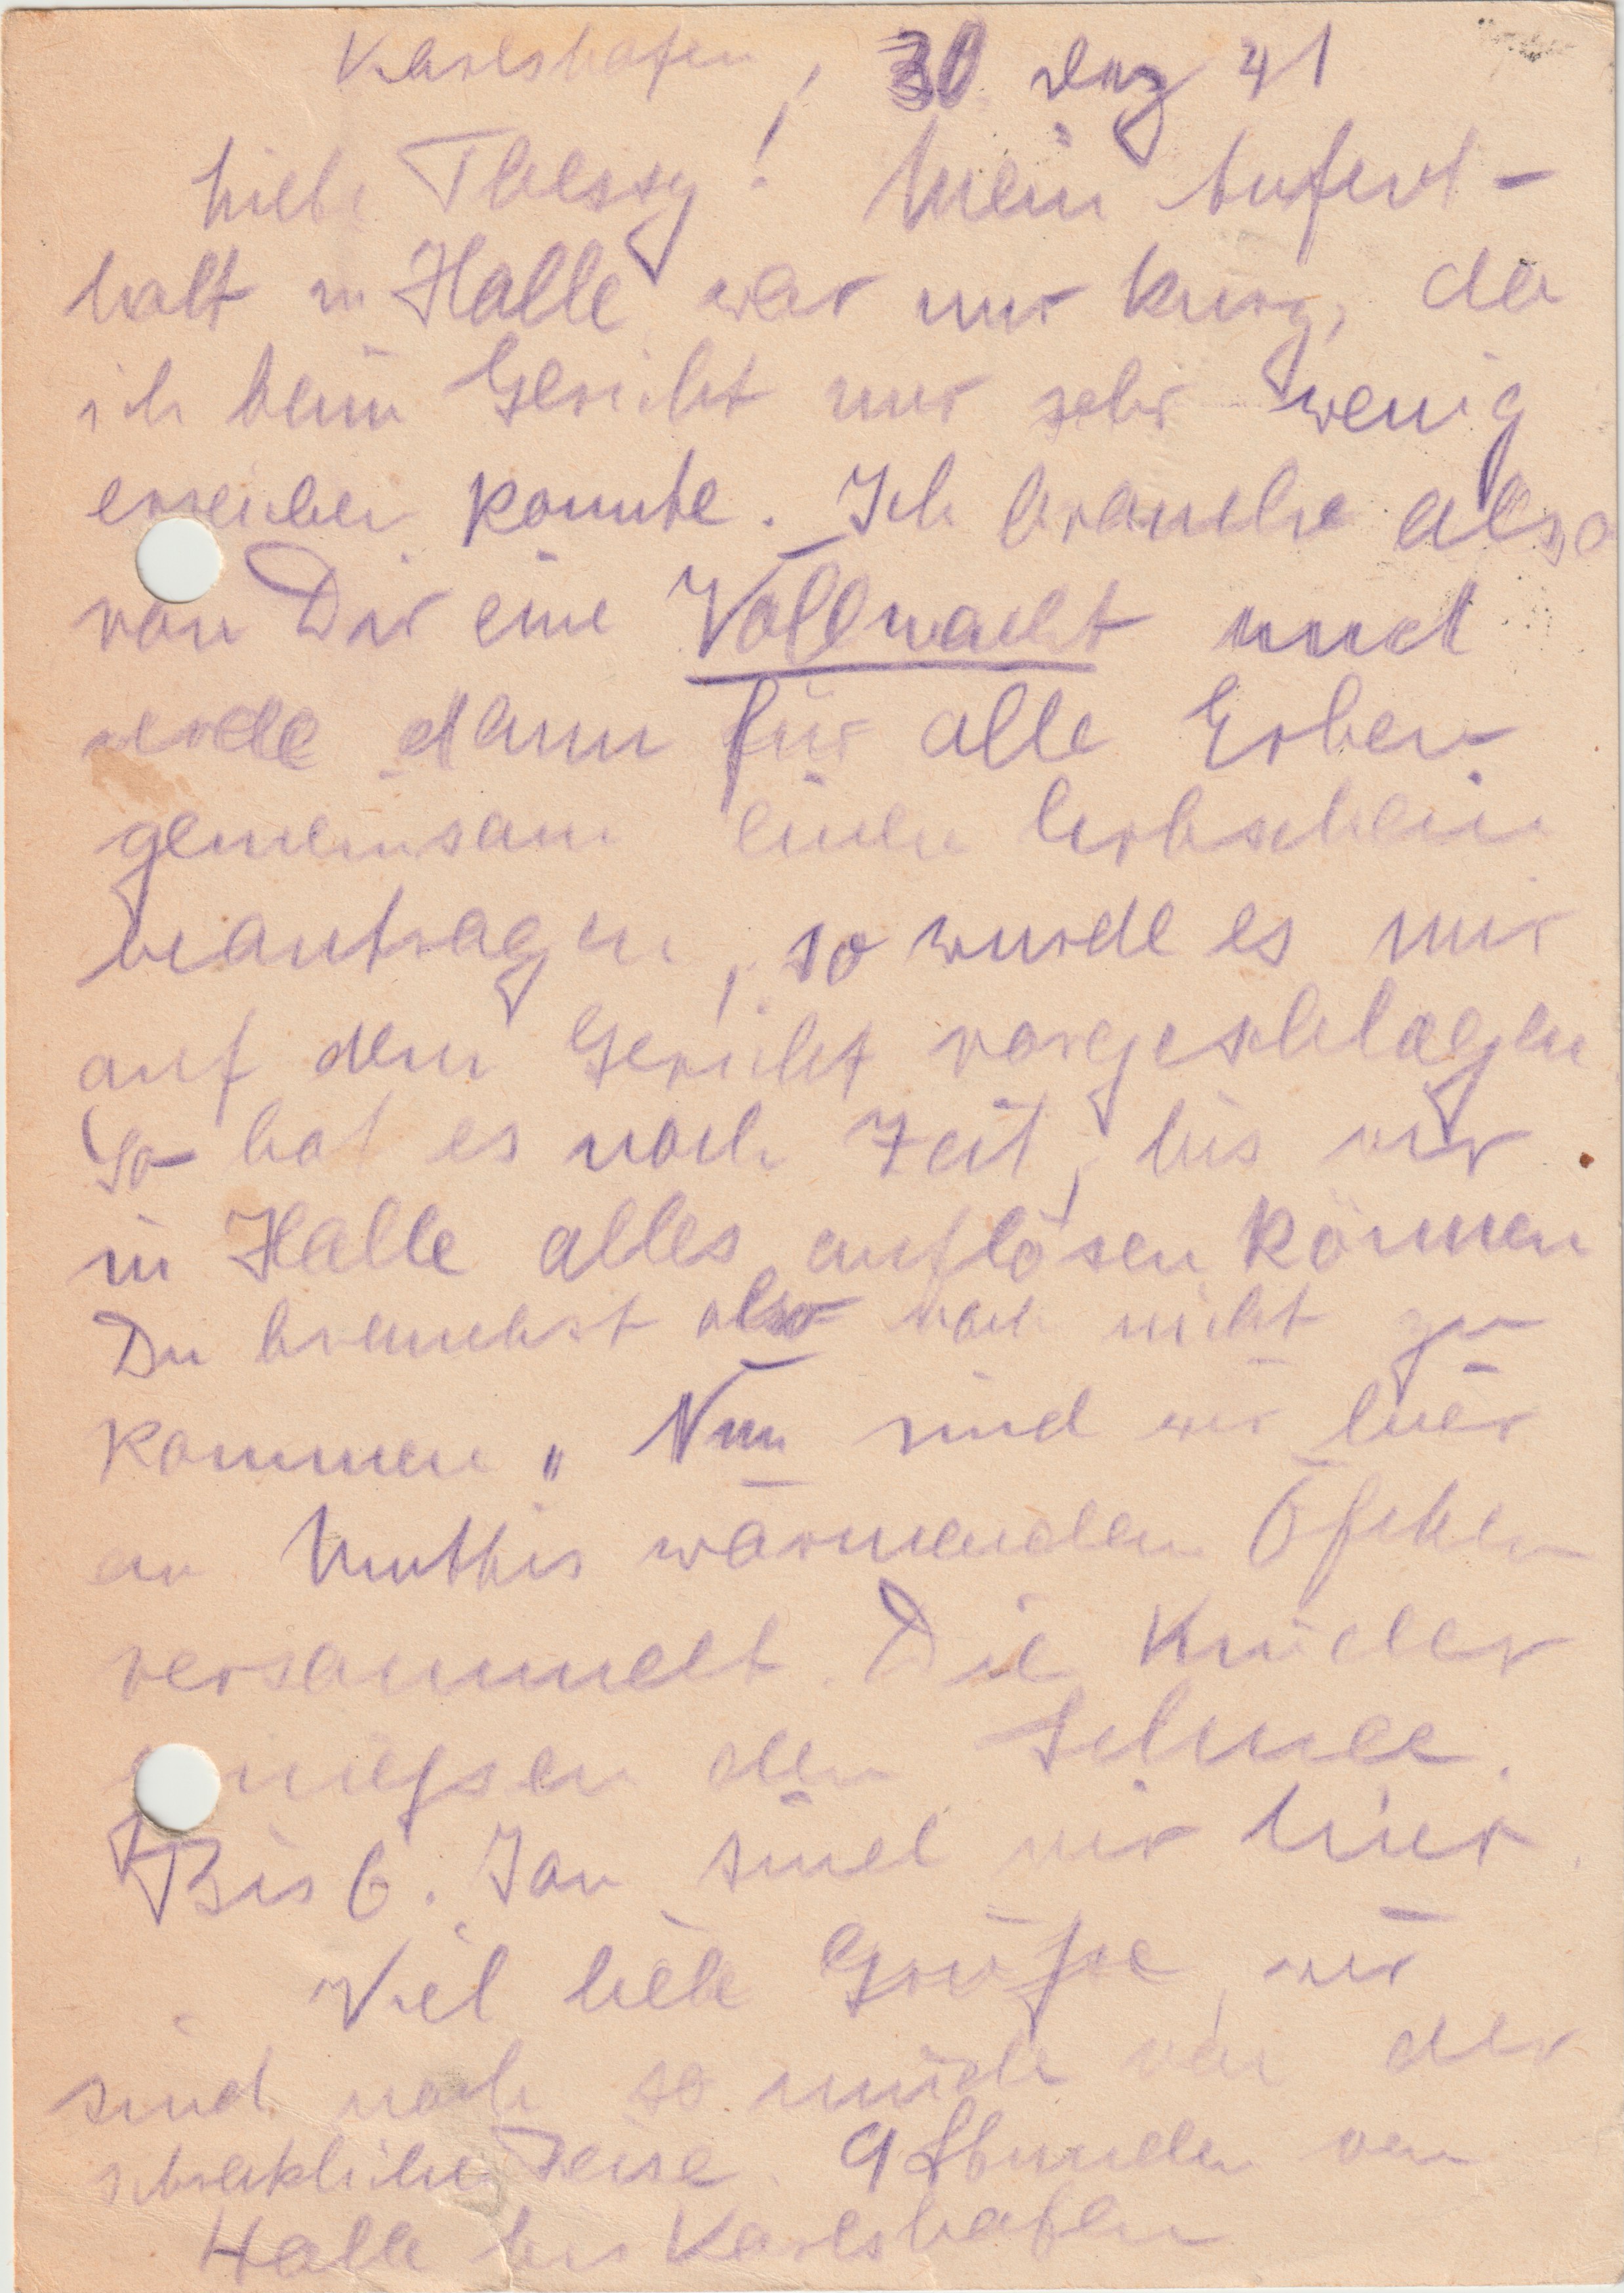 Karlshafen, 30 Dez 41
Liebe Thessy! Mein Aufent-
halt in Halle war nur kurz, da
ich beim Gericht nur sehr wenig
erreichen konnte. Ich brauche also
von Dir eine Vollmacht und
werde dann für alle Erben
gemeinsam einen Erbschein
beantragen, so wurde es mir
auf dem Gericht vorgeschlagen
So hat es noch Zeit, bis wir
in Halle alles auflösen können
Du brauchst also noch nicht zu
kommen. Nun sind wir hier
an Muttis wärmenden Öfchen
versammelt. Die Kinder
genießsen den Schnee.
Bis 6. Jan sind wir hier.
Viel liebe Grüße, wir
sind noch so müde von der
schrecklichen Reise. 9 Stunden von
Halle bis Karlshafen